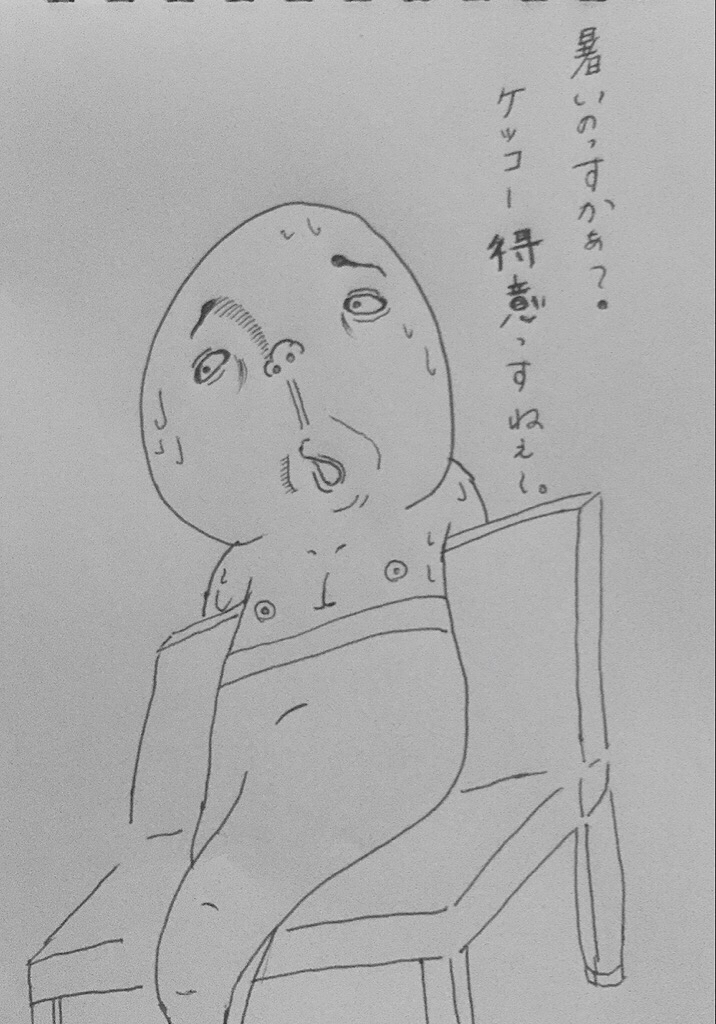 暑いのっすかぁ?。
ケッコー得意っすねぇ〜。